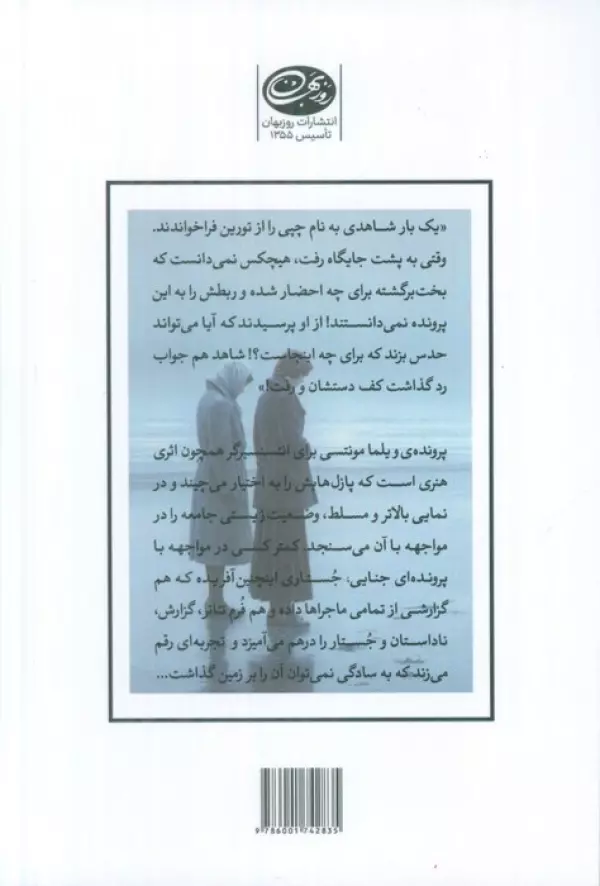 روزبهان
انتشارات روزبهان
تأسیس ۱۳۵۵
«یک بار شاهدی به نام چپی را از تورین فراخواندند.
وقتی به پشت جایگاه رفت، هیچکس نمی‌دانست که
بخت‌برگشته برای چه احضار شده و ربطش را به این
پرونده نمی‌دانستند! از او پرسیدند که آیا می‌تواند
حدس بزند که برای چه اینجاست؟! شاهد هم جواب
رد گذاشت کف دستشان و رفت!»
پرونده‌ی ویلما مونتسی برای انتسنسبرگر همچون اثری
هنری است که پازل‌هایش را به اختیار می‌چیند و در
نمایی بالاتر و مسلط، وضعیت زیستی جامعه را در
مواجهه با آن می‌سنجد. کمتر کسی در مواجهه با
پرونده‌ای جنایی، جُستاری اینچنین آفریده که هم
گزارشی از تمامی ماجراها داده و هم فُرم تئاتر، گزارش،
ناداستان و جُستار را درهم می‌آمیزد و تجربه‌ای رقم
می‌زند که به سادگی نمی‌توان آن را بر زمین گذاشت...
9 786001 742835